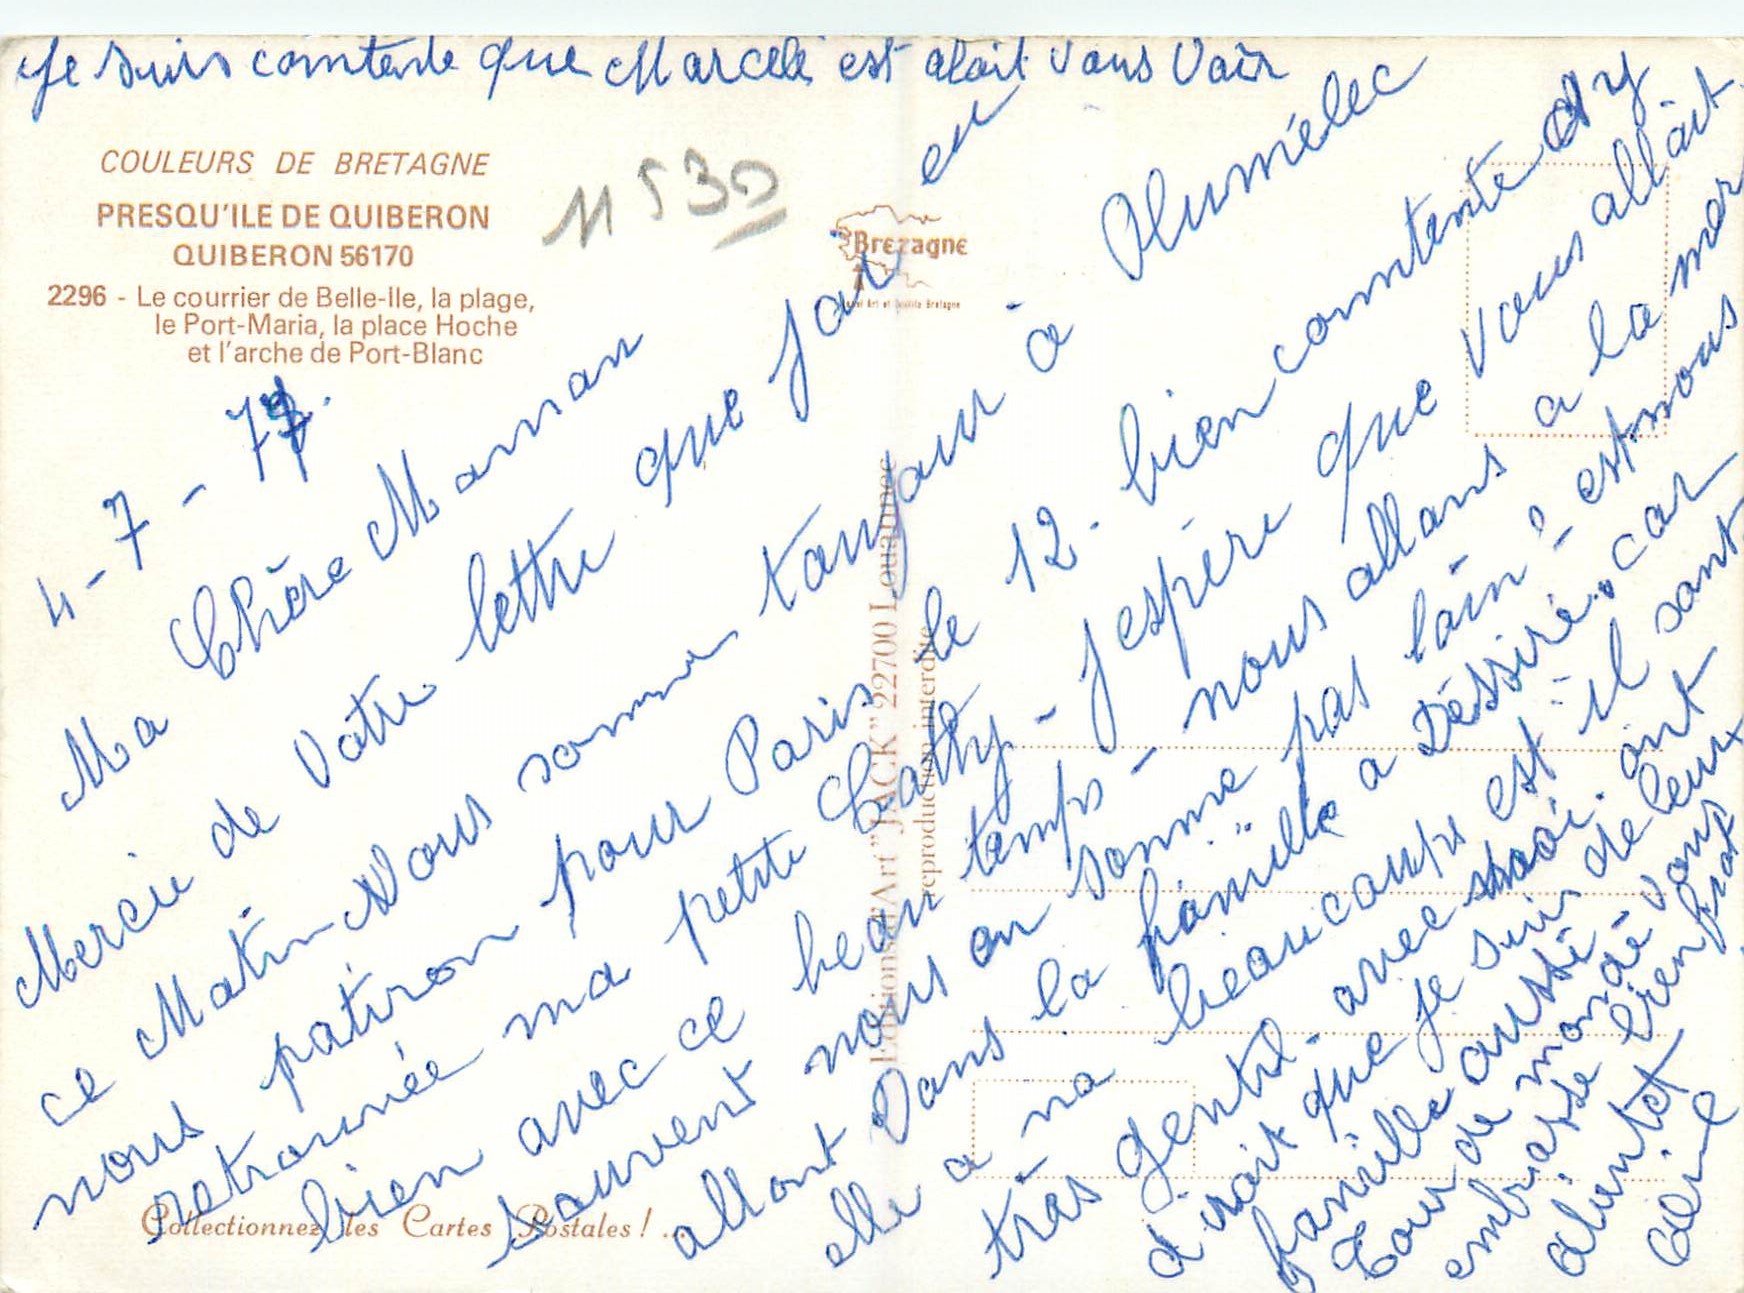 Je suis contente que Marcele est alait vous voir
COULEURS DE BRETAGNE
PRESQU'ILE DE QUIBERON
QUIBERON 56170
2296 - Le courrier de Belle-Ile, la plage,
le Port-Maria, la place Hoche
et l'arche de Port-Blanc
11530
Bretagne
Editions d'Art "JACK" 22700 Louannec
reproduction interdite
Collectionnez les Cartes Postales ! ...
4-7-77.
Ma Chère Maman
Mercie de votre lettre que jai eu
ce Matin Nous somme toujour à Plumélec
nous patiron pour Paris le 12. bien comtente dy
retournée ma petite Cathy - Jespère que vous allait
bien avec ce beau temps - nous allons a la mer
souvent nous on somme pas loin - est nous
allont Dans la famille a Déssiré. car
elle a na beaucoups est il sont
très gentil. avec moi. ont
dirait que je suis de leur
famille aussi - vous
Tour de monde
embrasse bien frot
Aline